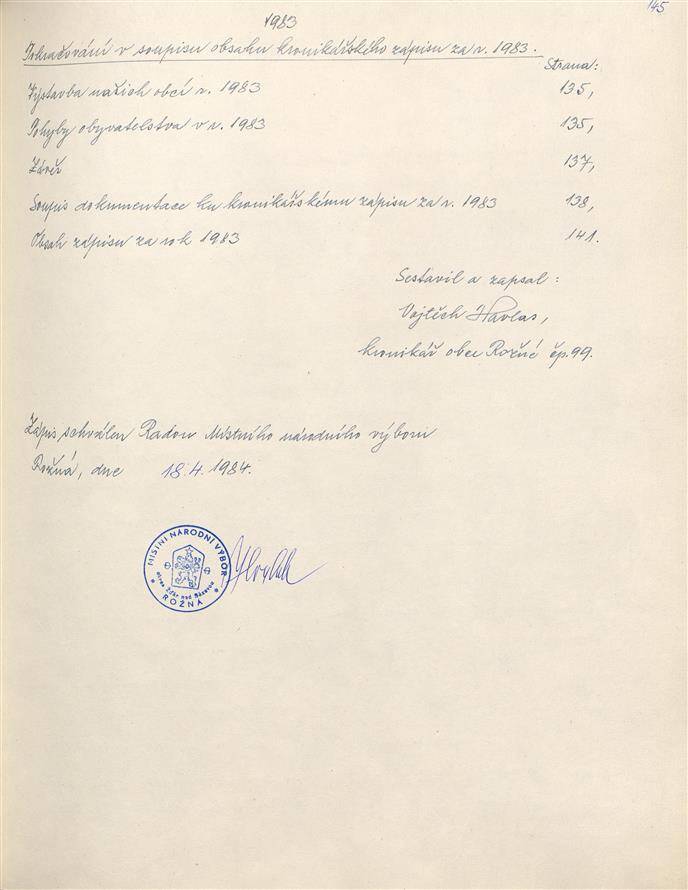 145
1983
Pokračování v soupisu obsahu kronikářského zápisu za r. 1983.
Strana:
Výstavba našich obcí r. 1983 135,
Pohyby obyvatelstva v r. 1983 135,
Závěr 137,
Soupis dokumentace ku kronikářskému zápisu za r. 1983 138,
Obsah zápisu za rok 1983 141.
Sestavil a zapsal:
Vojtěch Havlas,
kronikář obce Rožné čp. 99.
Zápis schválen Radou Místního národního výboru
Rožná, dne 18.4.1984.
MÍSTNÍ NÁRODNÍ VÝBOR
okres Žďár nad Sázavou
ROŽNÁ